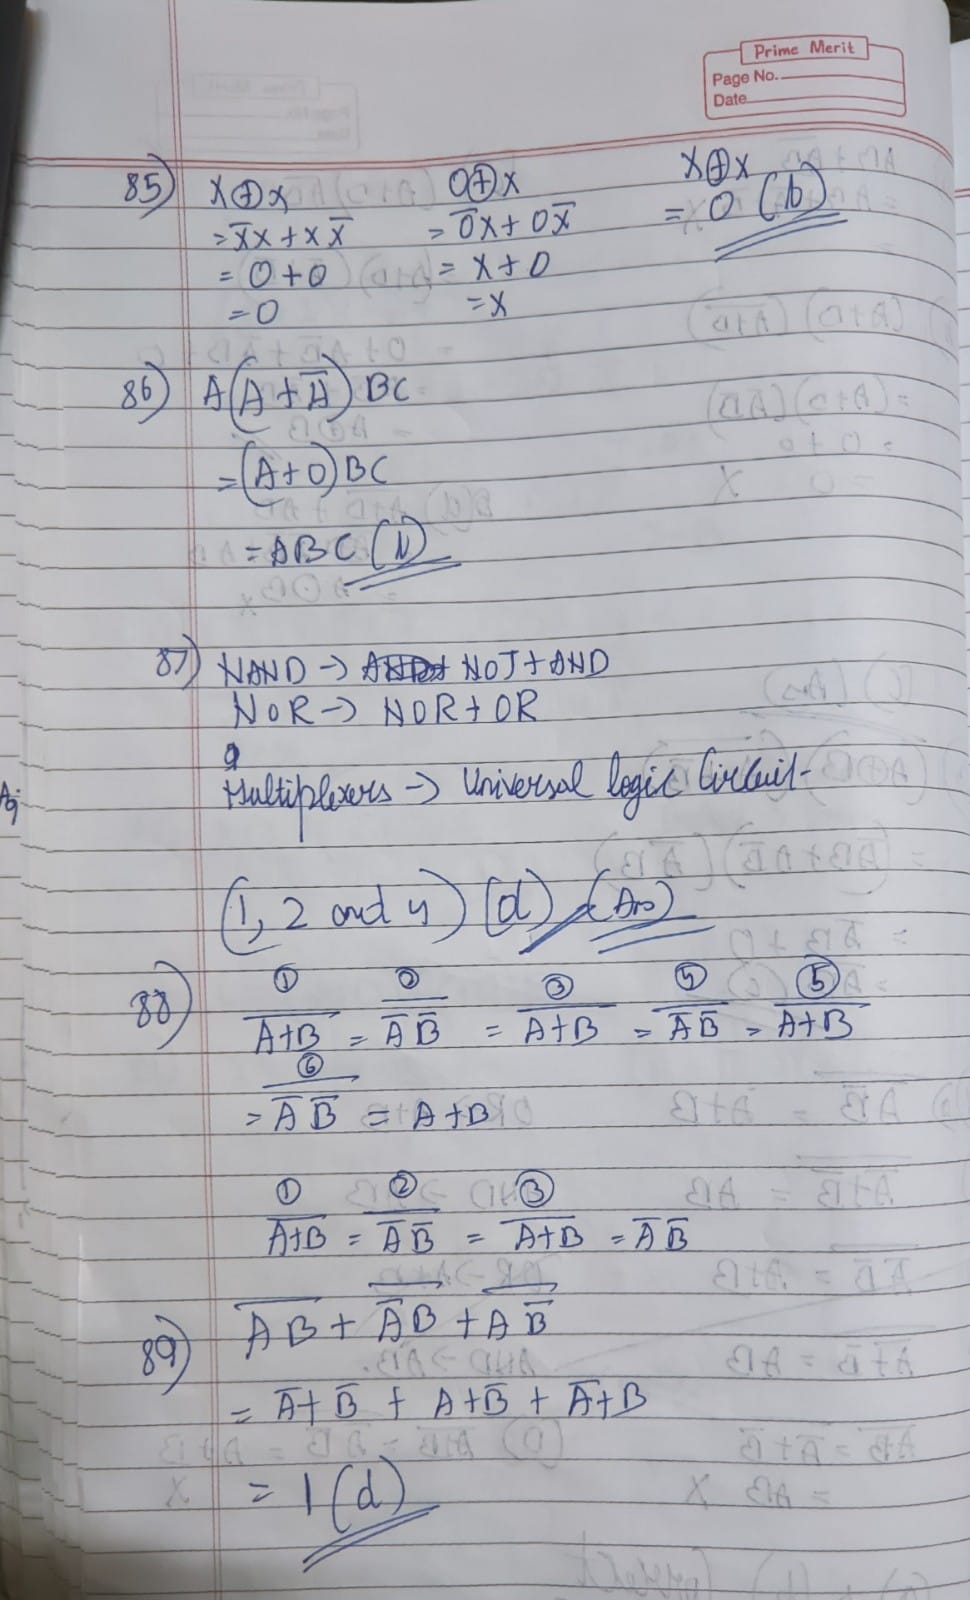 Prime Merit
Page No.
Date
85) X⊕x 0⊕x X⊕x
= X̅x + xX̅ = 0̅x + 0X̅ = 0 (b)
= 0+0 = x+0
= 0 = x
86) A(A+A̅)BC
= (A+0)BC
= ABC
87) NAND → NOT+AND
NOR → NOR+OR
Multiplexers → Universal logic Circuit
(1, 2 and 4) (d) (Ans)
① ② ③ ⑤
88) \overline{A+B} = \overline{A̅ B̅} = \overline{A+B} = \overline{A̅ B̅} = \overline{A+B}
⑥
= \overline{A̅ B̅} = A+B
① ② ③
\overline{A+B} = \overline{A̅ B̅} = \overline{A+B} = A̅ B̅
89) \overline{AB} + \overline{A̅B} + \overline{AB̅}
= A̅+B̅ + A+B̅ + A̅+B
= 1 (d)